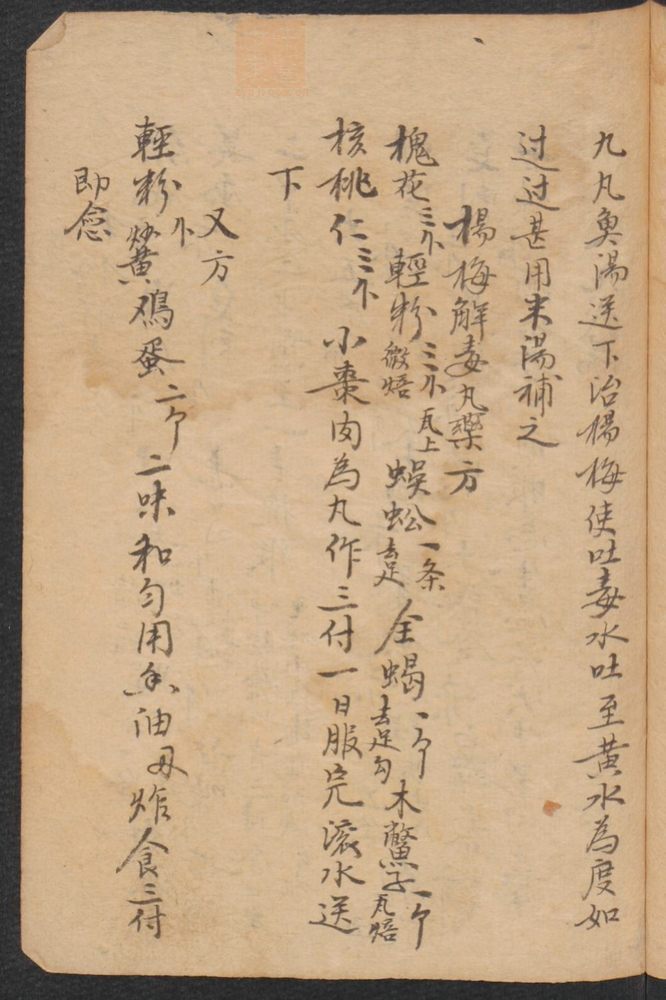 九丸臭湯送下治楊梅使吐毒水吐至黄水為度如
过过甚用米湯補之
楊梅解毒丸藥方
槐花三个 輕粉三个瓦上微焙 蜈蚣一条去足 全蝎一个去足勾 木鱉子一个瓦焙
核桃仁三个 小棗肉為丸作三付一日服完滚水送
下
又方
輕粉个炒黄 鳮蛋二个 二味和匀用香油 炸食三付
即愈